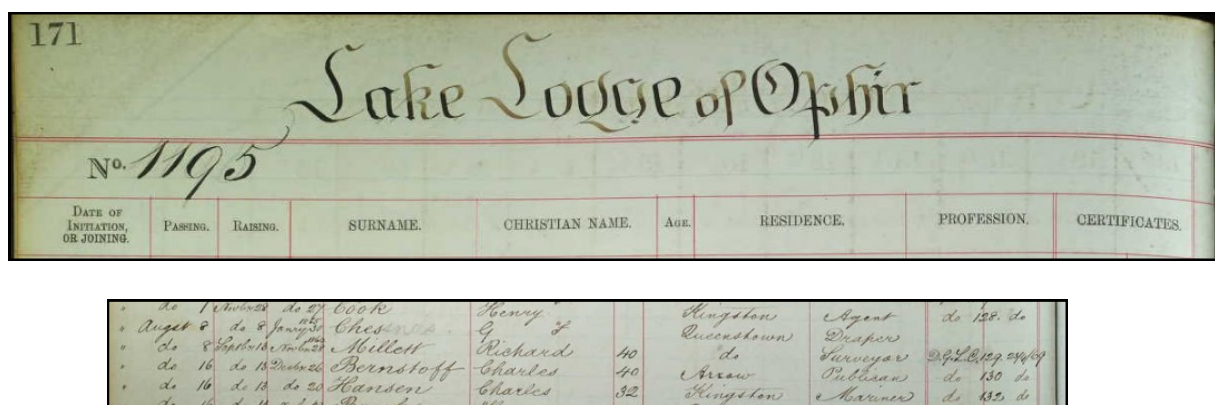 171
Lake Lodge of Ophir
No. 1195
DATE OF INITIATION, OR JOINING. PASSING. RAISING. SURNAME. CHRISTIAN NAME. AGE. RESIDENCE. PROFESSION. CERTIFICATES.
" do 1 Novbr 28 do 27 Cook Henry Kingston Agent do 128 do
" August 8 do 8 G F Queenstown Draper
" do 8 Septbr 13 Novbr 28 Millett Richard 40 do Surveyor 129
" do 16 do 13 Decbr 26 Bernstoff Charles 40 Arrow Publican do 130 do
" do 16 do 13 do 20 Hansen Charles 32 Kingston Mariner do 132 do